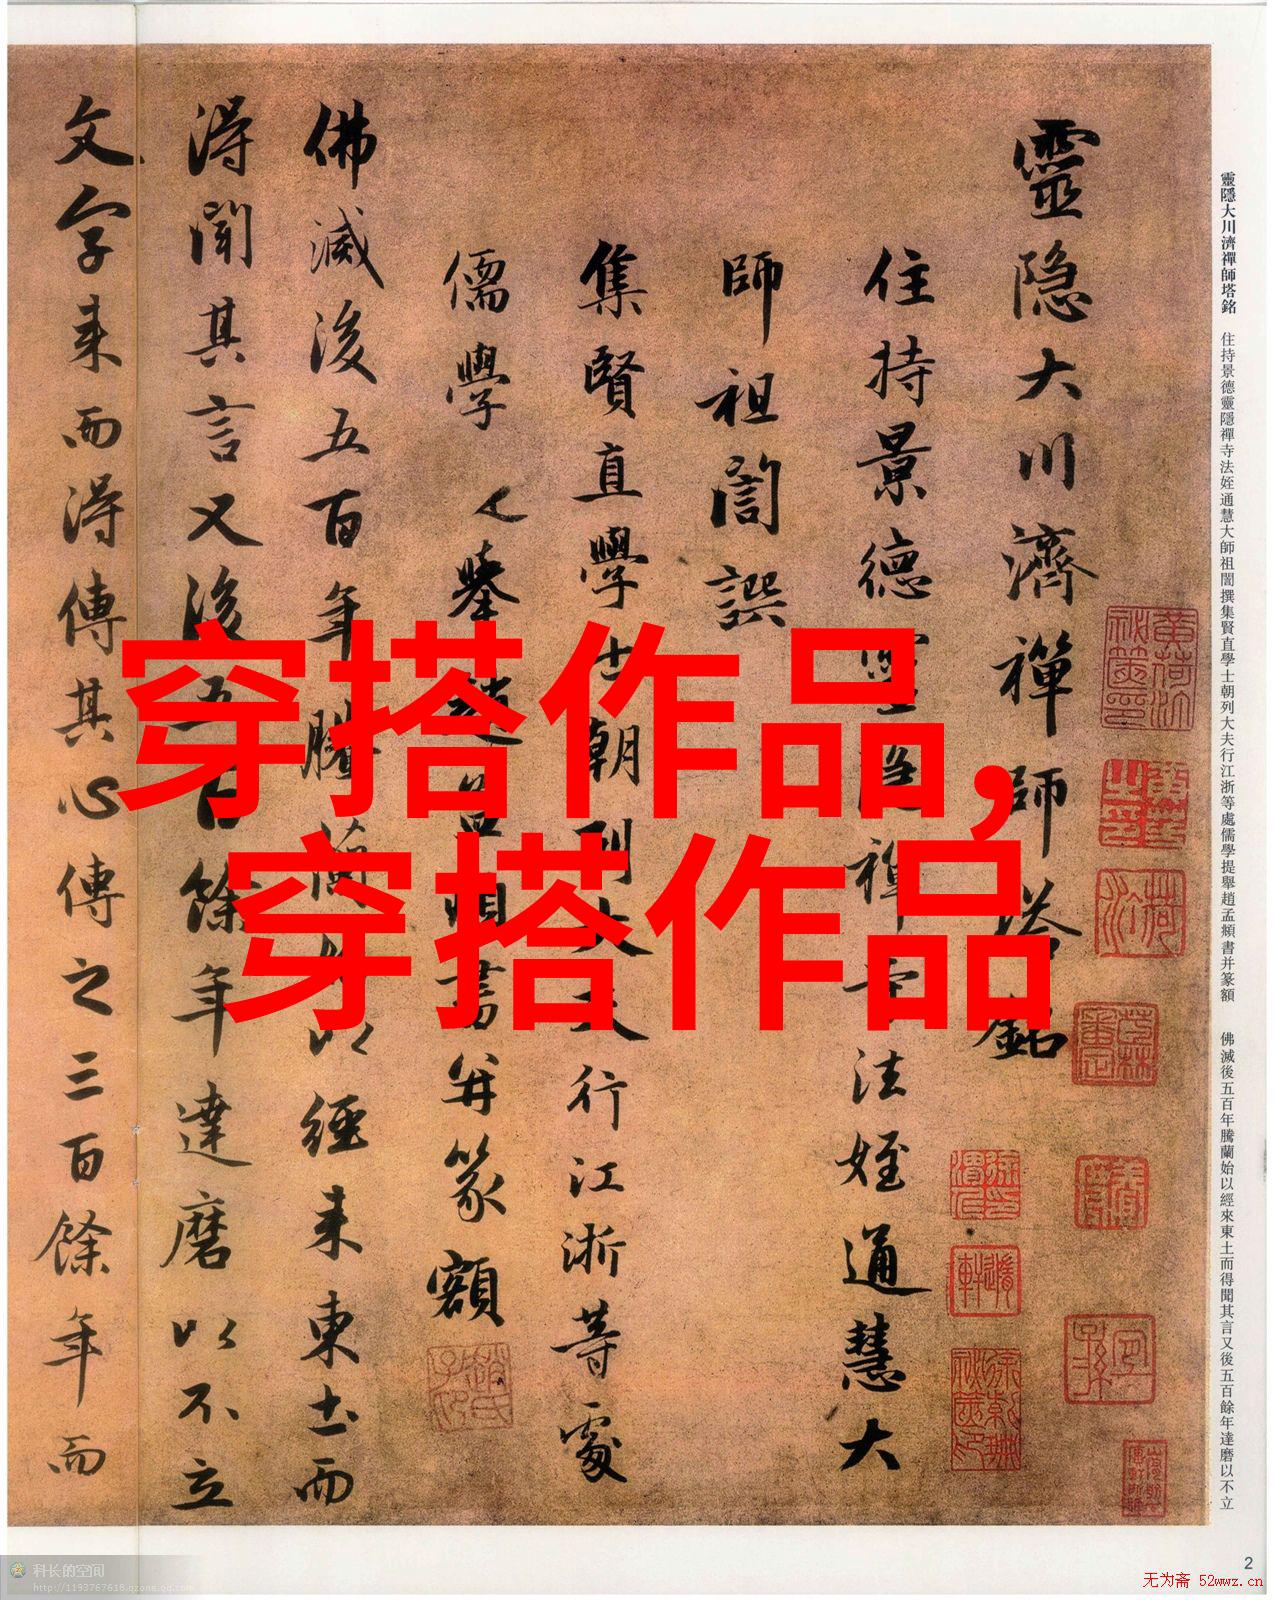 靈隐大川濟禪師塔銘
住持景德靈隐禪寺法姪通慧大
師祖誾譔
集賢直學士朝列大夫行江浙等處
儒學
趙孟頫書并篆額
佛滅後五百年騰蘭始以經来東土而
得聞其言又後五百餘年達磨以不立
文字来而得傳其心傳之三百餘年而
穿搭作品,
穿搭作品
靈隱大川濟禪師塔銘 住持景德靈隱禪寺法姪通慧大師祖誾撰集賢直學士朝列大夫行江浙等處儒學提舉趙孟頫書并篆額 佛滅後五百年騰蘭始以經來東土而得聞其言又後五百餘年達磨以不立
2
科长的空间
http://1193767618.qzone.qq.com
无为斋 52wwz.cn